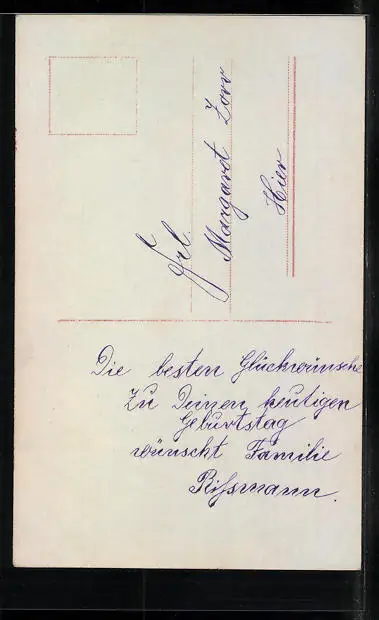 Frl.
Margarot Zorr
Hier
Die besten Glückwünsche
Zu Deinen heutigen
Geburtstag
wünscht Familie
Rißmann.